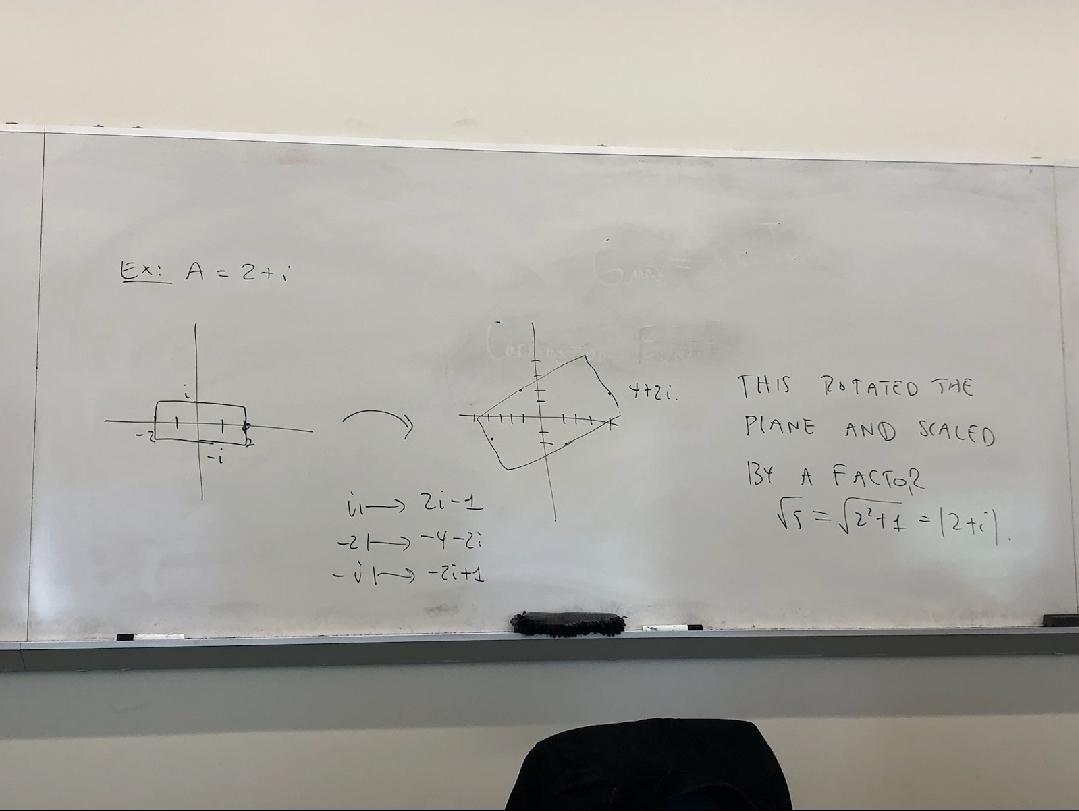 Ex: A = 2+i
i
-2
2
-i
4+2i.
i ↦ 2i-1
-2 ↦ -4-2i
-i ↦ -2i+1
THIS ROTATED THE
PLANE AND SCALED
BY A FACTOR
√5 = √2²+1 = |2+i|.